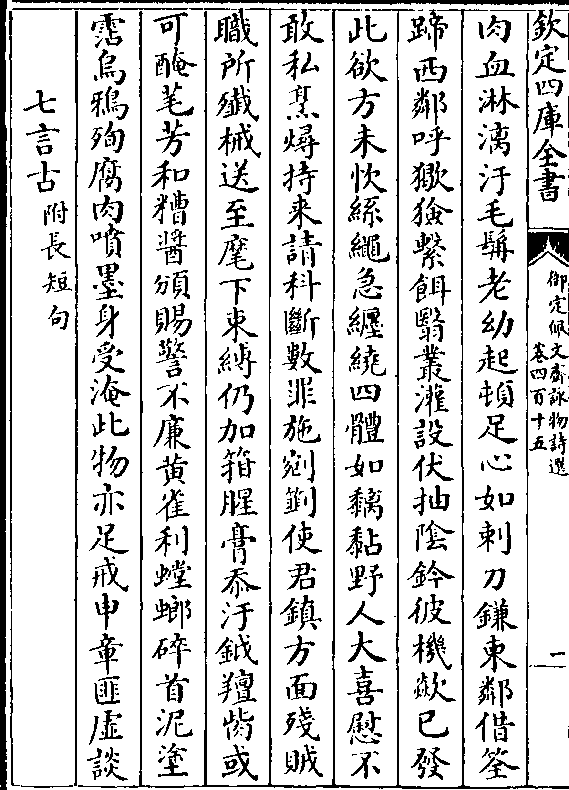 欽定四庫全書
御定佩文齋詠物詩選
卷四百十五
一
肉血淋漓汙毛鬝老幼起頓足心如刺刀鎌東鄰借筌
蹄西鄰呼獫獫繫餌翳叢灌設伏抽陰鈐彼機歘已發
此欲方未忺絲繩急纏繞四體如黐黏野人大喜慰不
敢私烹燖持來請科斷數罪施剜劗使君鎮方面殘賊
職所殱械送至麾下束縛仍加箝腥膏忝汙鉞羶胔或
可醃芼芳和糟醬頒賜警不廉黄雀利螳螂碎首泥塗
霑烏鴉殉腐肉噴墨身受淹此物亦足戒申章匪虛談
七言古附長短句